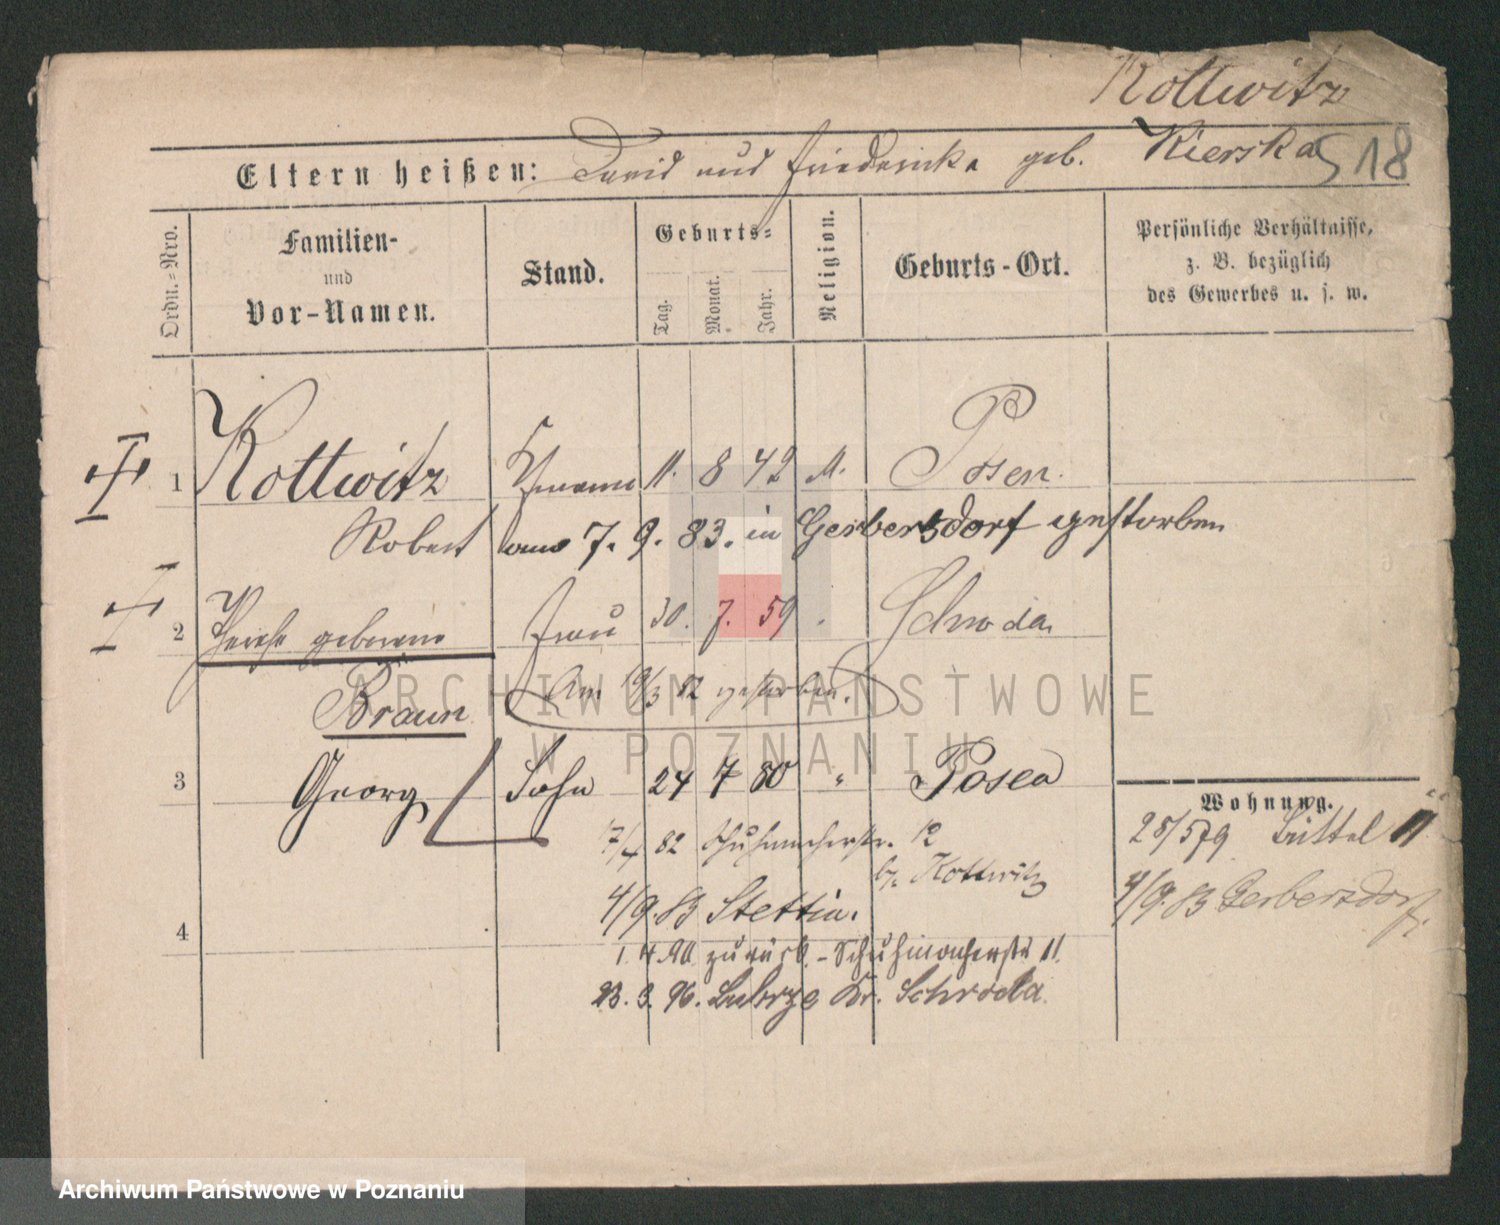 Kottwitz
Eltern heißen: David und Friedericka geb. Kierska
518
Ordn.-Nro.
Familien-
und
Vor-Namen.
Stand.
Geburts-
Tag.
Monat.
Jahr.
Religion.
Geburts-Ort.
Persönliche Verhältnisse,
z. B. bezüglich
des Gewerbes u. s. w.
1 Kottwitz Kfmann 11. 8 42 M. Posen.
Robert am 7. 9. 83. in Gerbersdorf gestorben
2 geborene Frau 30. 7. 59 Schroda
Braun Am 19/3 82 gestorben.
3 Georg Sohn 24 7 80 " Posen
Wohnung.
28/5 79 Büttel 11
17/4 82 Schuhmacherstr. 12
b/. Kottwitz
4/9. 83 Stettin.
4/9. 83 Gerbersdorf.
4
zurück. - Schuhmacherstr 11.
23. 3. 96. Kr. Schroda
ARCHIWUM PAŃSTWOWE
W POZNANIU
Archiwum Państwowe w Poznaniu